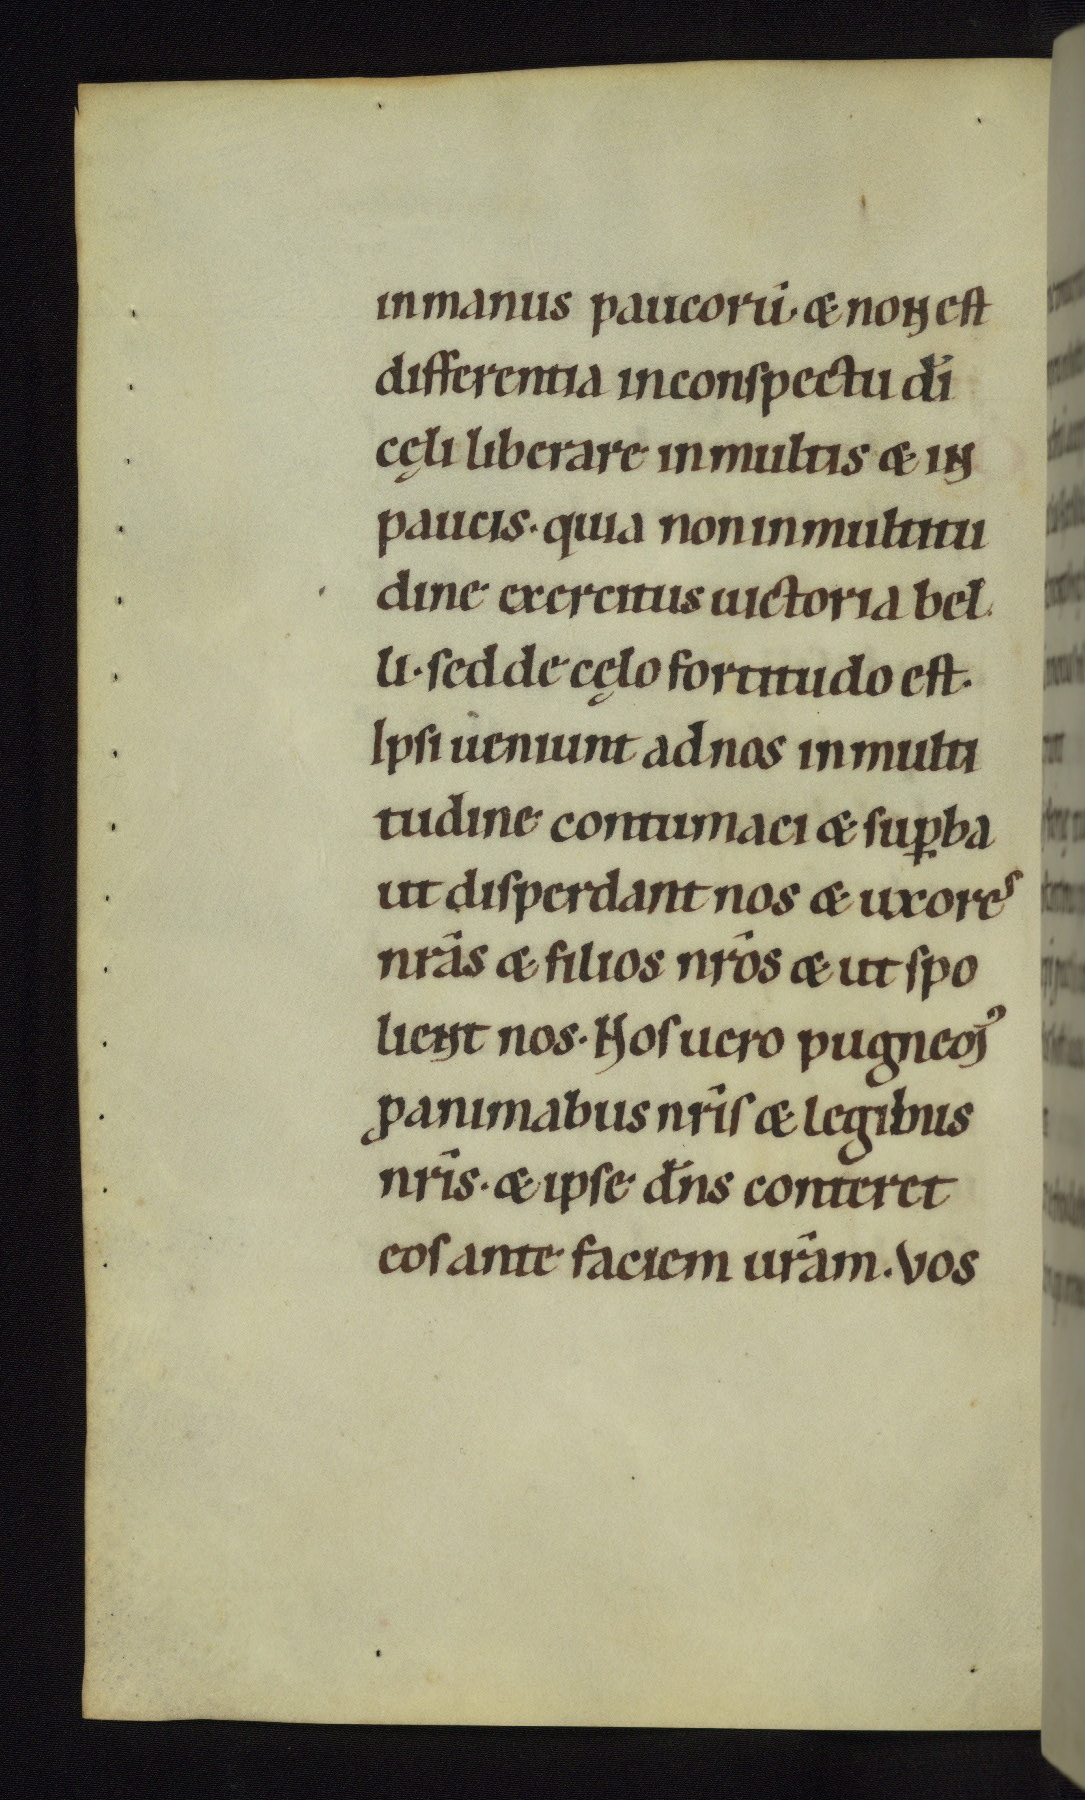 inmanus paucorū· & non est
differentia inconspectu dī
cęli liberare inmultis & in
paucis· quia noninmultitu
dine exercitus uictoria bel
li· sed de cęlo fortitudo est·
Ipsi ueniunt ad nos inmulti
tudine contumaci & suꝑba
ut disperdant nos & uxores
nr̄as & filios nr̄os & ut spo
lient nos· Nos uero pugnem᷒
ꝓanimabus nr̄is & legibus
nr̄is· & ipse dn̄s conteret
eos ante faciem ur̄am· Vos